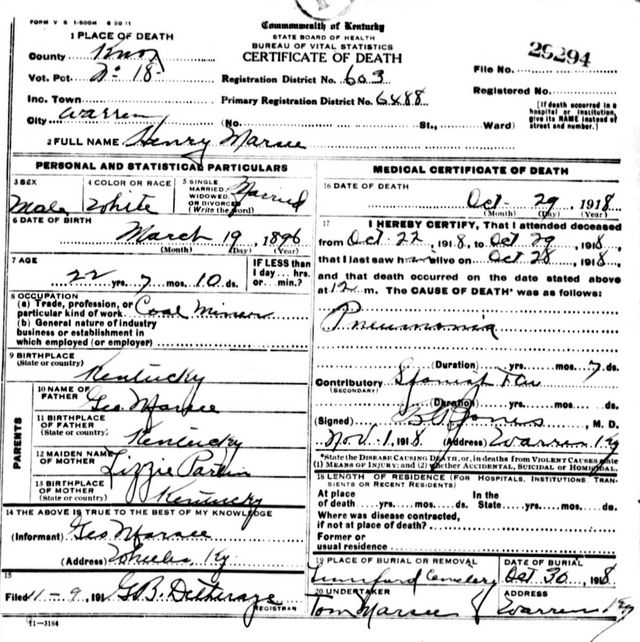 FORM V S 1-500M 6 20 11
Commonwealth of Kentucky
STATE BOARD OF HEALTH
BUREAU OF VITAL STATISTICS
CERTIFICATE OF DEATH
1 PLACE OF DEATH
County Knox
Vot. Pct. No 18
Inc. Town
City Warren
Registration District No. 603
Primary Registration District No. 6488
(No. St., Ward)
File No. 26294
Registered No.
[If death occurred in a hospital or institution, give its NAME instead of street and number.]
2 FULL NAME Henry Marsee
PERSONAL AND STATISTICAL PARTICULARS
3 SEX
Male
4 COLOR OR RACE
White
5 SINGLE, MARRIED, WIDOWED, OR DIVORCED
(Write the word)
Married
6 DATE OF BIRTH
March 19, 1896
(Month) (Day) (Year)
7 AGE
22 yrs. 7 mos. 10 ds.
IF LESS than
1 day... hrs.
or... min.?
8 OCCUPATION
(a) Trade, profession, or
particular kind of work Coal Miner
(b) General nature of industry
business or establishment in
which employed (or employer)
9 BIRTHPLACE
(State or country)
Kentucky
PARENTS
10 NAME OF
FATHER
Geo Marsee
11 BIRTHPLACE
OF FATHER
(State or country)
Kentucky
12 MAIDEN NAME
OF MOTHER
Lizzie
13 BIRTHPLACE
OF MOTHER
(State or country)
Kentucky
14 THE ABOVE IS TRUE TO THE BEST OF MY KNOWLEDGE
(Informant) Geo Marsee
(Address) Wheeler Ky
15
Filed 11-9, 191 G.B.
REGISTRAR
11-3184
MEDICAL CERTIFICATE OF DEATH
16 DATE OF DEATH
Oct- 29, 1918
(Month) (Day) (Year)
17 I HEREBY CERTIFY, That I attended deceased
from Oct 22, 1918, to Oct 29, 1918,
that I last saw h alive on Oct 28, 1918,
and that death occurred on the date stated above
at 12 m. The CAUSE OF DEATH* was as follows:
Pneumonia
(Duration) yrs. mos. 7 ds.
Contributory Spanish Flu
(SECONDARY)
(Duration) yrs. mos. ds.
(Signed) Jones, M. D.
Nov. 1, 1918 (Address) Warren Ky
*State the DISEASE CAUSING DEATH, or, in deaths from VIOLENT CAUSES state
(1) MEANS OF INJURY; and (2) whether ACCIDENTAL, SUICIDAL or HOMICIDAL.
18 LENGTH OF RESIDENCE (FOR HOSPITALS, INSTITUTIONS, TRANSIENTS OR RECENT RESIDENTS)
At place
of death yrs. mos. ds.
In the
State yrs. mos. ds.
Where was disease contracted,
if not at place of death?
Former or
usual residence
19 PLACE OF BURIAL OR REMOVAL
Cemetery
DATE OF BURIAL
Oct 30, 1918
20 UNDERTAKER
Tom Marsee
ADDRESS
Warren Ky